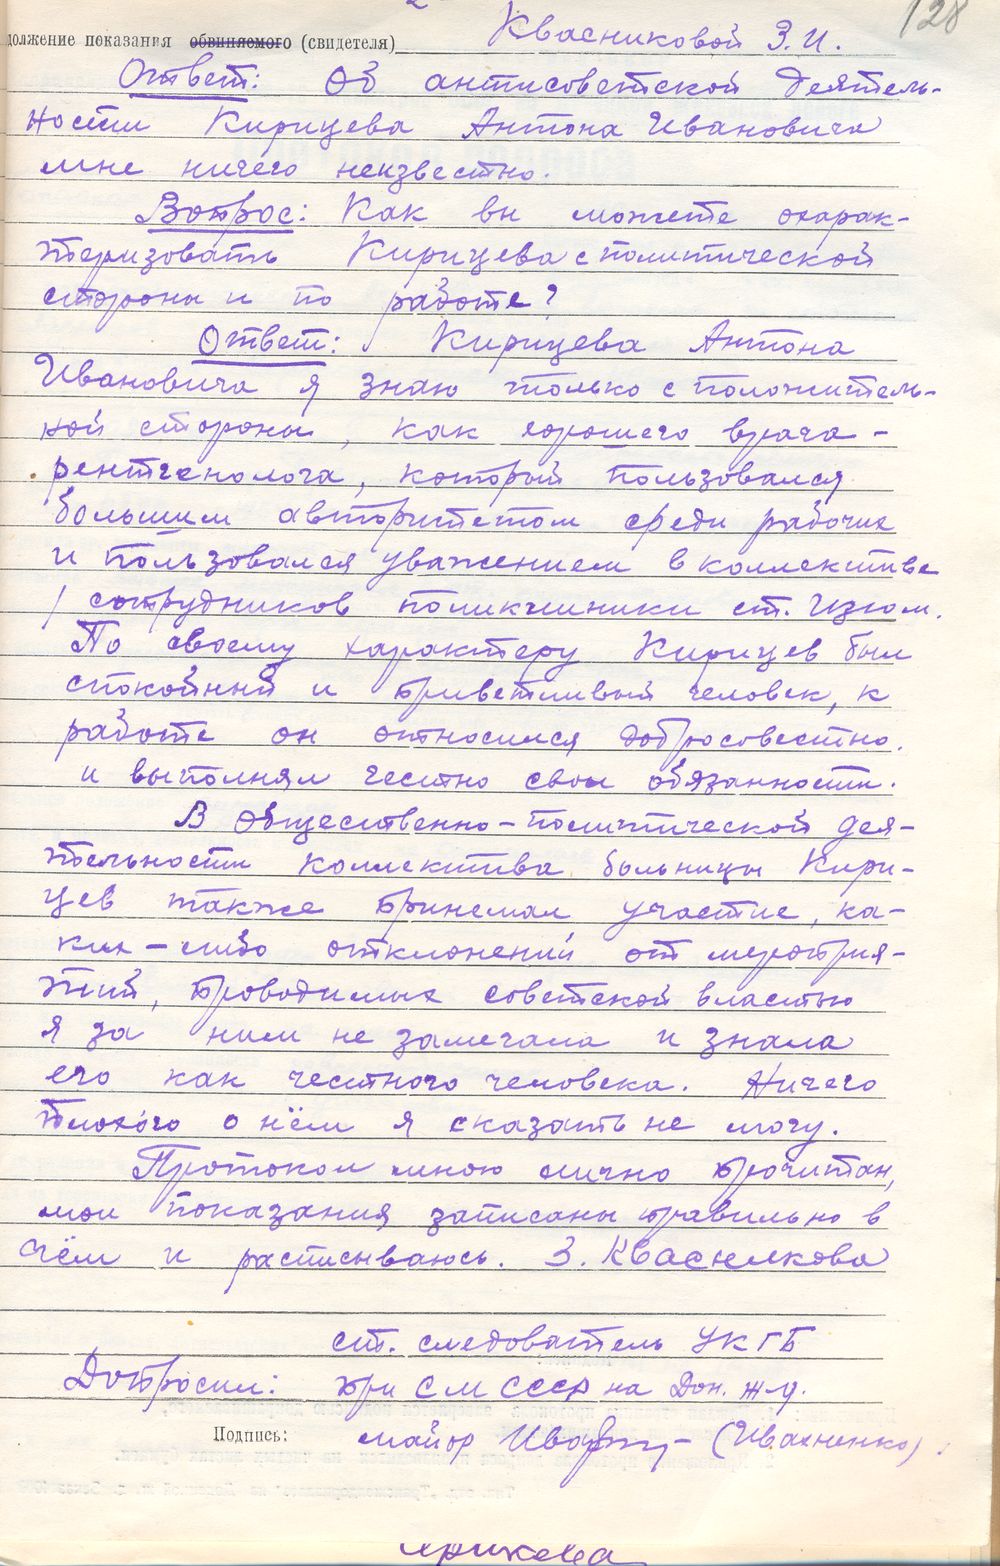 128
должение показания обвиняемого (свидетеля) Квасниковой З.И.
Ответ: Об антисоветской деятель-
ности Кирицева Антона Ивановича
мне ничего неизвестно.
Вопрос: Как вы можете охарак-
теризовать Кирицева с политической
стороны и по работе?
Ответ: Кирицева Антона
Ивановича я знаю только с положитель-
ной стороны, как хорошего врача-
рентгенолога, который пользовался
большим авторитетом среди рабочих
и пользовался уважением в коллективе
сотрудников поликлиники ст. Изюм.
По своему характеру Кирицев был
спокойный и приветливый человек, к
работе он относился добросовестно.
и выполнял честно свои обязанности.
В общественно-политической дея-
тельности коллектива больницы Кири-
цев также принимал участие, ка-
ких-либо отклонений от меропри-
ятий, проводимых советской властью
я за ним не замечала и знала
его как честного человека. Ничего
плохого о нём я сказать не могу.
Протокол мною лично прочитан,
мои показания записаны правильно в
чём и расписываюсь. З. Квасникова
ст. следователь УКГБ
Допросил: при СМ СССР на Дон. ж.д.
Подпись: майор (Ивахненко).